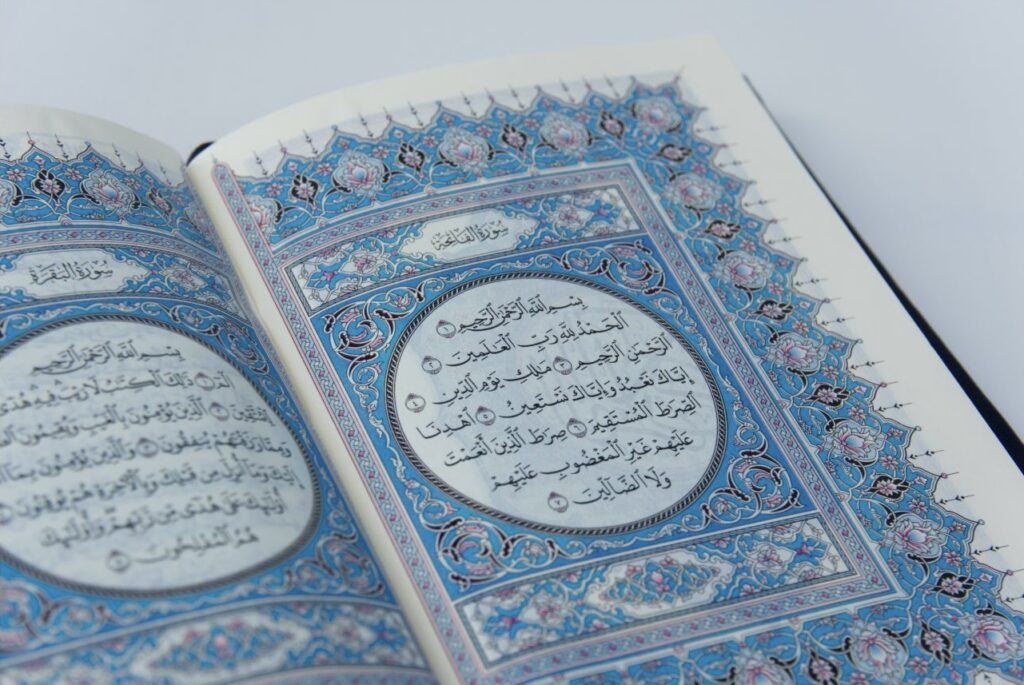 سُورَةُ الْفَاتِحَةِ
بِسْمِ ٱللَّهِ ٱلرَّحْمَٰنِ ٱلرَّحِيمِ ١
ٱلْحَمْدُ لِلَّهِ رَبِّ ٱلْعَٰلَمِينَ ٢
ٱلرَّحْمَٰنِ ٱلرَّحِيمِ ٣ مَٰلِكِ يَوْمِ ٱلدِّينِ ٤
إِيَّاكَ نَعْبُدُ وَإِيَّاكَ نَسْتَعِينُ ٥ ٱهْدِنَا
ٱلصِّرَٰطَ ٱلْمُسْتَقِيمَ ٦ صِرَٰطَ ٱلَّذِينَ أَنْعَمْتَ
عَلَيْهِمْ غَيْرِ ٱلْمَغْضُوبِ عَلَيْهِمْ
وَلَا ٱلضَّآلِّينَ ٧
سُورَةُ الْبَقَرَةِ
بِسْمِ ٱللَّهِ ٱلرَّحْمَٰنِ ٱلرَّحِيمِ
الٓمٓ ١ ذَٰلِكَ ٱلْكِتَٰبُ لَا رَيْبَ فِيهِ هُدًى
لِّلْمُتَّقِينَ ٢ ٱلَّذِينَ يُؤْمِنُونَ بِٱلْغَيْبِ وَيُقِيمُونَ
وَمِمَّا رَزَقْنَٰهُمْ يُنفِقُونَ ٣ وَٱلَّذِينَ يُؤْمِنُونَ بِمَآ
إِلَيْكَ وَمَآ أُنزِلَ مِن قَبْلِكَ وَبِٱلْءَاخِرَةِ هُمْ يُوقِنُونَ
أُو۟لَٰٓئِكَ عَلَىٰ هُدًى مِّن رَّبِّهِمْ وَأُو۟لَٰٓئِكَ
هُمُ ٱلْمُفْلِحُونَ ٥